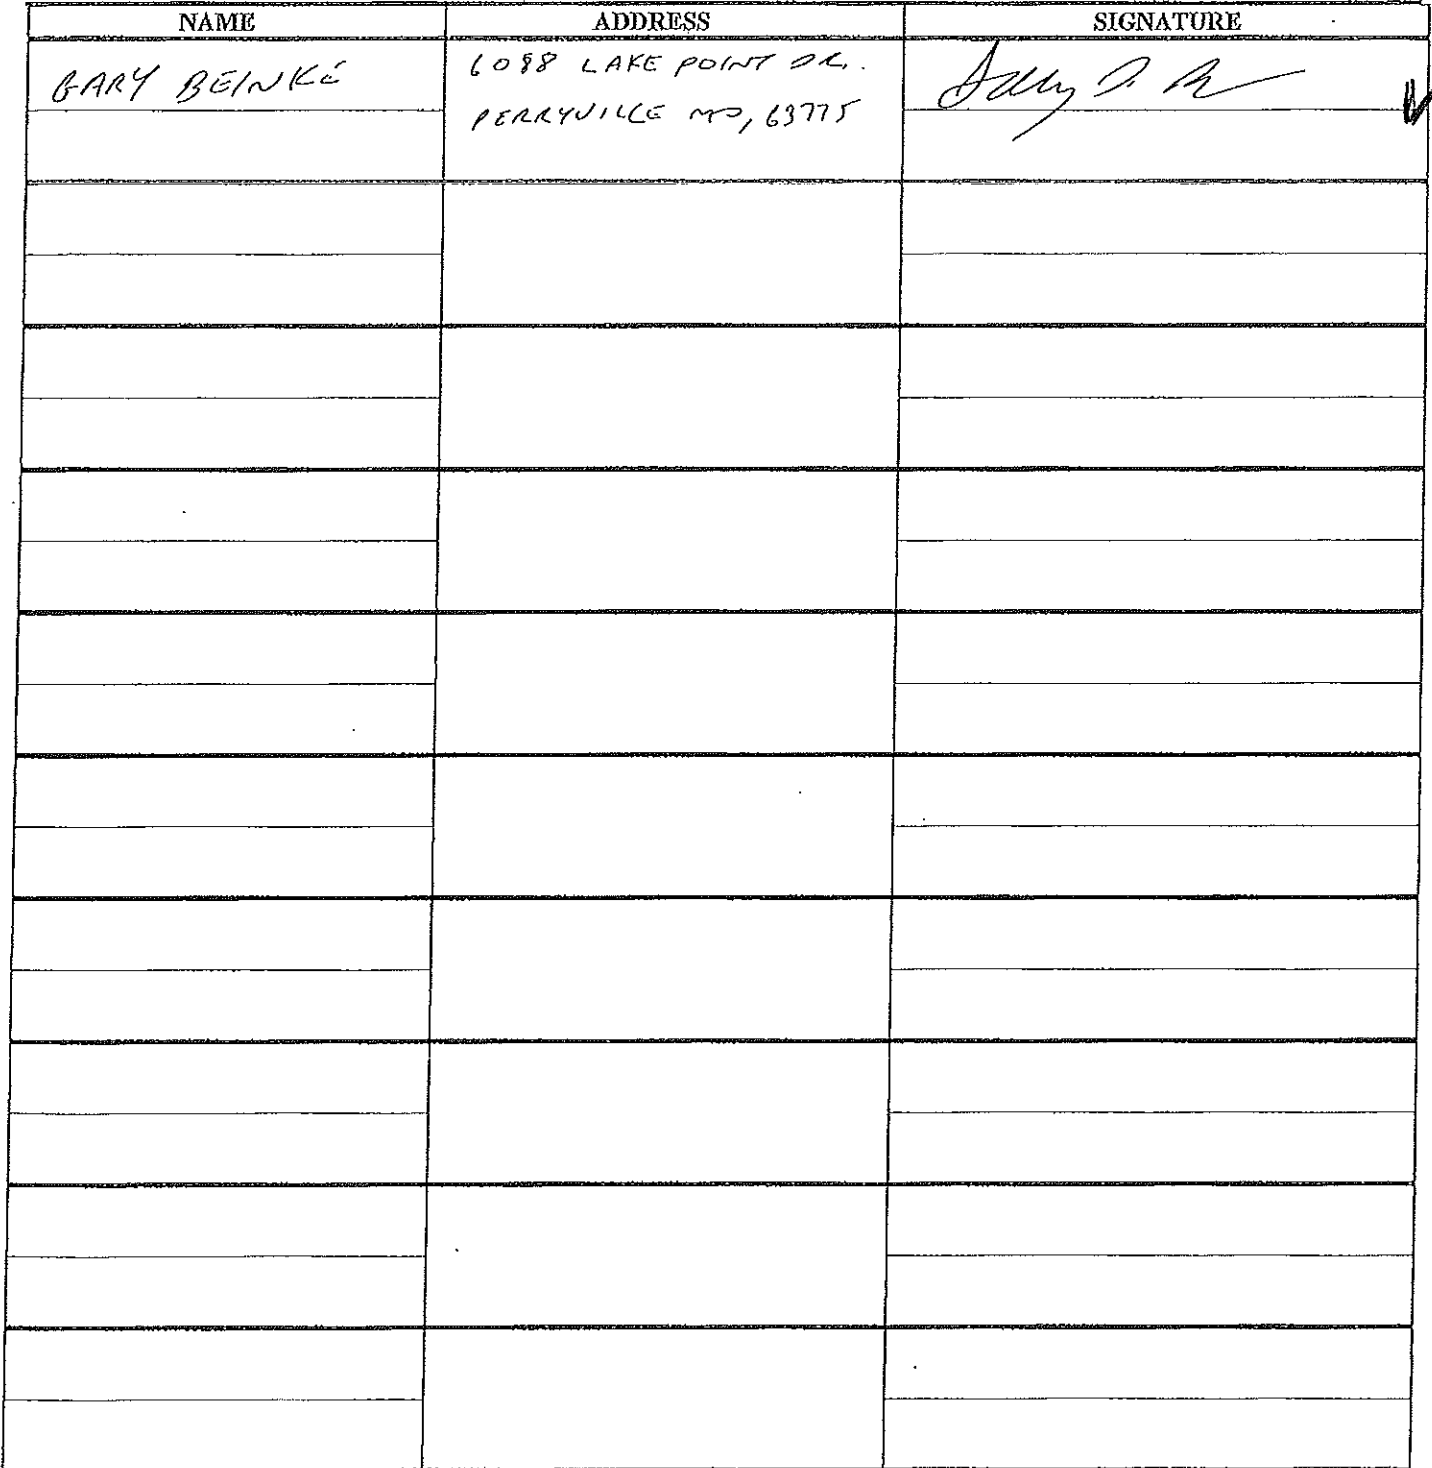 NAME ADDRESS SIGNATURE
GARY BEINKE
6088 LAKE POINT DR.
PERRYVILLE MO, 63775